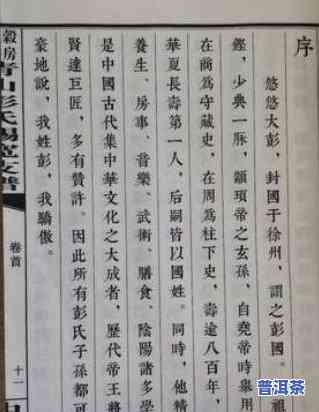 序
悠悠大彭，封國于徐州，謂之彭國。
鏗，少典一脈，顓頊帝之玄孫，自堯帝時舉用
在商為守藏史，在周為柱下史，壽逾八百年，
華夏長壽第一人，后嗣皆以國姓。同時，他精
養生、房事、音樂、武術、膳食、陰陽諸多學
是中國古代集中華文化之大成者，歷代帝王將
賢達巨匠，多有贊許。因此所有彭氏子孫都可
豪地說，我姓彭，我驕傲。
穀房青山彭氏錫寬支譜
卷首
十一
普洱茶